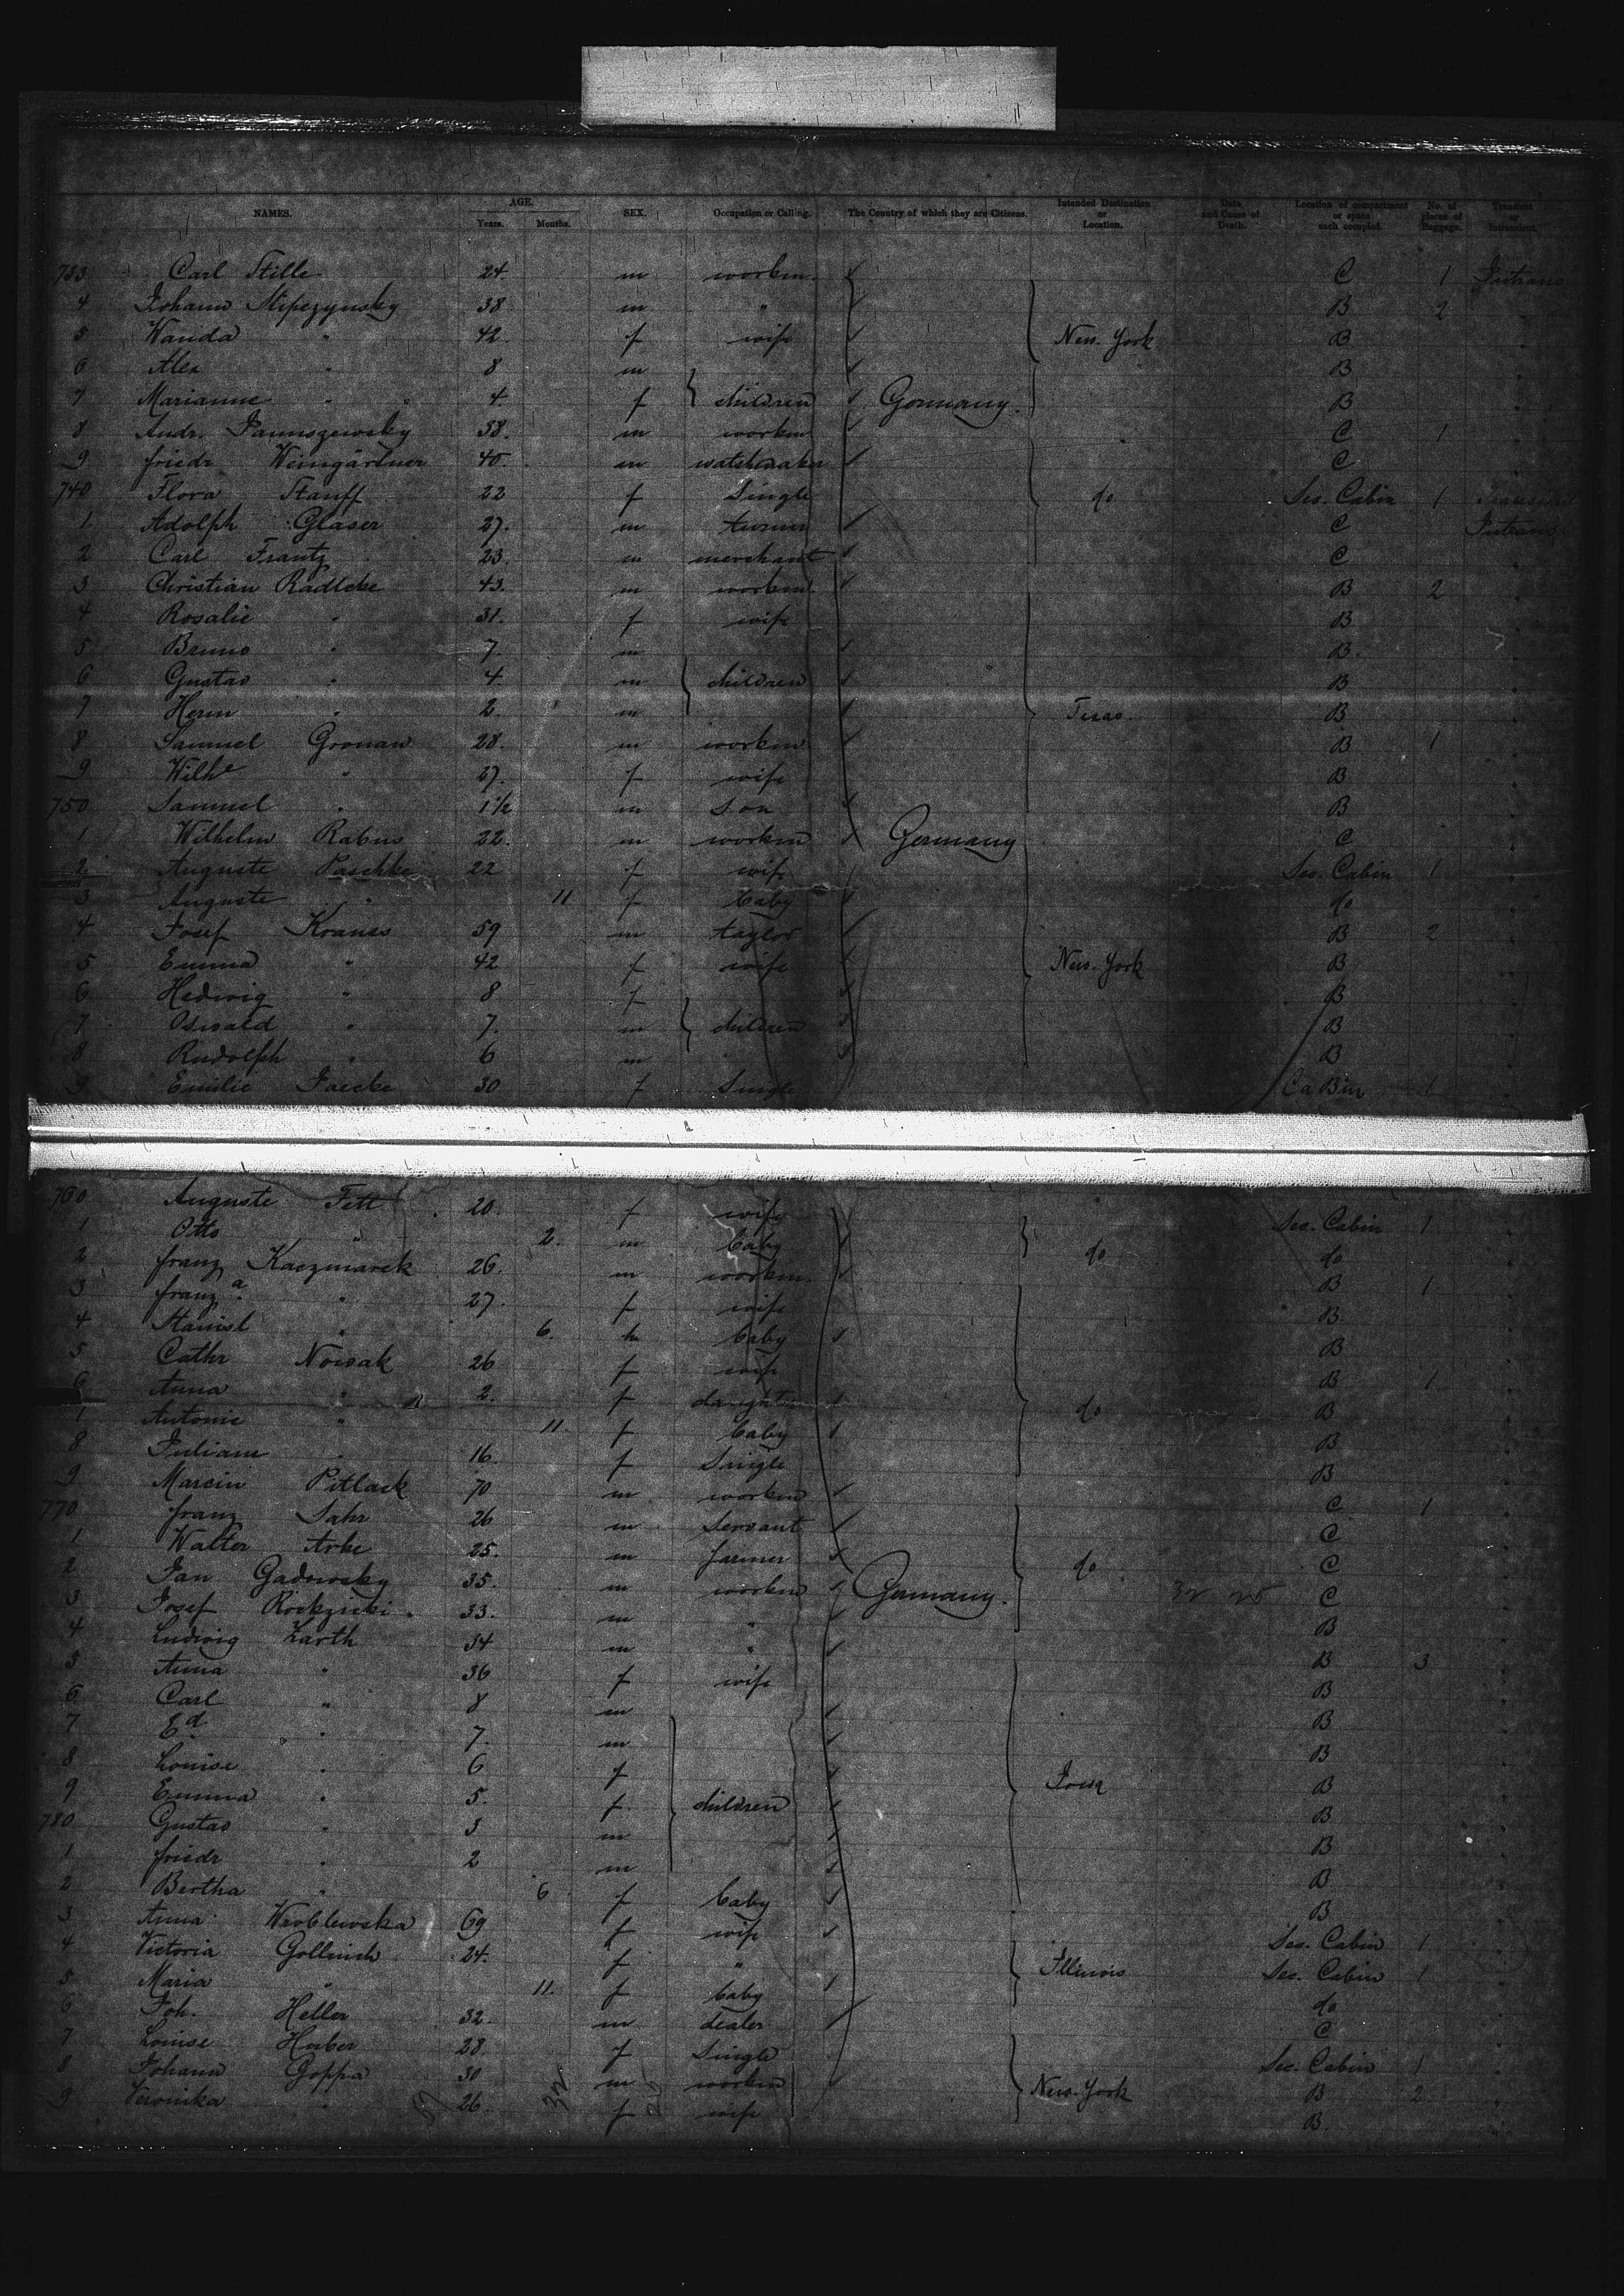 NAMES. AGE. Years. Months. SEX. Occupation or Calling. The Country of which they are Citizens. Intended Destination or Location. Date and Cause of Death. Location of compartment or space each occupied. No. of pieces of Baggage. Transient or
733 Carl Stille 24. m workm. C 1 Intrans
4 Johann 38 m " B 2
5 Wanda " 42. f wife New-York B
6 Alex " 8 m B
7 Marianne " 4. f children Germany. B
8 Andr. 58. m workm C 1
9 friedr Weingärtner 40. m watchmaker C
740 Flora Stauff 22 f Single do Sec. Cabin 1 Transient
1. Adolph Glaser 27. m turner C Intrans
2 Carl Frantz 23. m merchant C
3 Christian Radleke 43. m workm. B 2
4 Rosalie " 31. f wife B
5 Bruno " 7. m B.
6 Gustav " 4. m children B
7 Herm " 2. m Texas. B
8 Samuel Gronau 28. m workm B 1
9 Wilhe " 27. f wife B
750 Samuel " 1½ m Son B
1 Wilhelm Rabus 22. m workm Germany C
2 Auguste Paschke 22 f wife Sec. Cabin 1
3 Auguste " 11 f baby do
4 Josef Krauss 59 m taylor B 2
5 Emma " 42 f wife New-York B
6 Hedwig " 8 f B
7 Oswald " 7. m children B
8 Rudolph " 6 m B
9 Emilie Jaecke 30 f Single CaBin 1
760 Auguste Fett 20. f wife Sec. Cabin 1
1 Otto " 2. m baby do do
2 franz Kaczmarek 26. m workm. B 1
3 franza " 27. f wife B.
4 Stanisl " 6. m baby B
5 Cathr Nowak 26 f wife B 1
6 Anna " 2. f daughter do B
7 Antonie " 11. f baby B
8 Juliane " 16. f Single B
9 Marcin Pitlack 70 m workm C 1
770 franz Sahr 26 m Servant C
1 Walter Arke 25. m farmer do C
2 Jan Gadowsky 35. m workm Germany. C
3 Josef 33. m " B
4 Ludwig Larth 34 m " B 3
5 Anna " 36 f wife B
6 Carl " 8 m B
7 Ed " 7. m B
8 Louise " 6 f Iowa B
9 Emma " 5. f. children B
780 Gustav " 3 m B
1 friedr " 2 m B
2 Bertha " 6 f baby B
3 Anna Wroblewska 69 f wife Sec. Cabin 1
4 Victoria Gollnick 24. f " Illinois Sec. Cabin 1
5 Maria " 11. f baby do
6 Joh. Heller 32. m dealer C
7 Louise Huber 28. f Single Sec. Cabin 1
8 Johann Goppa 30 m workm New-York B 2
9 Veronika " 26. f wife B.